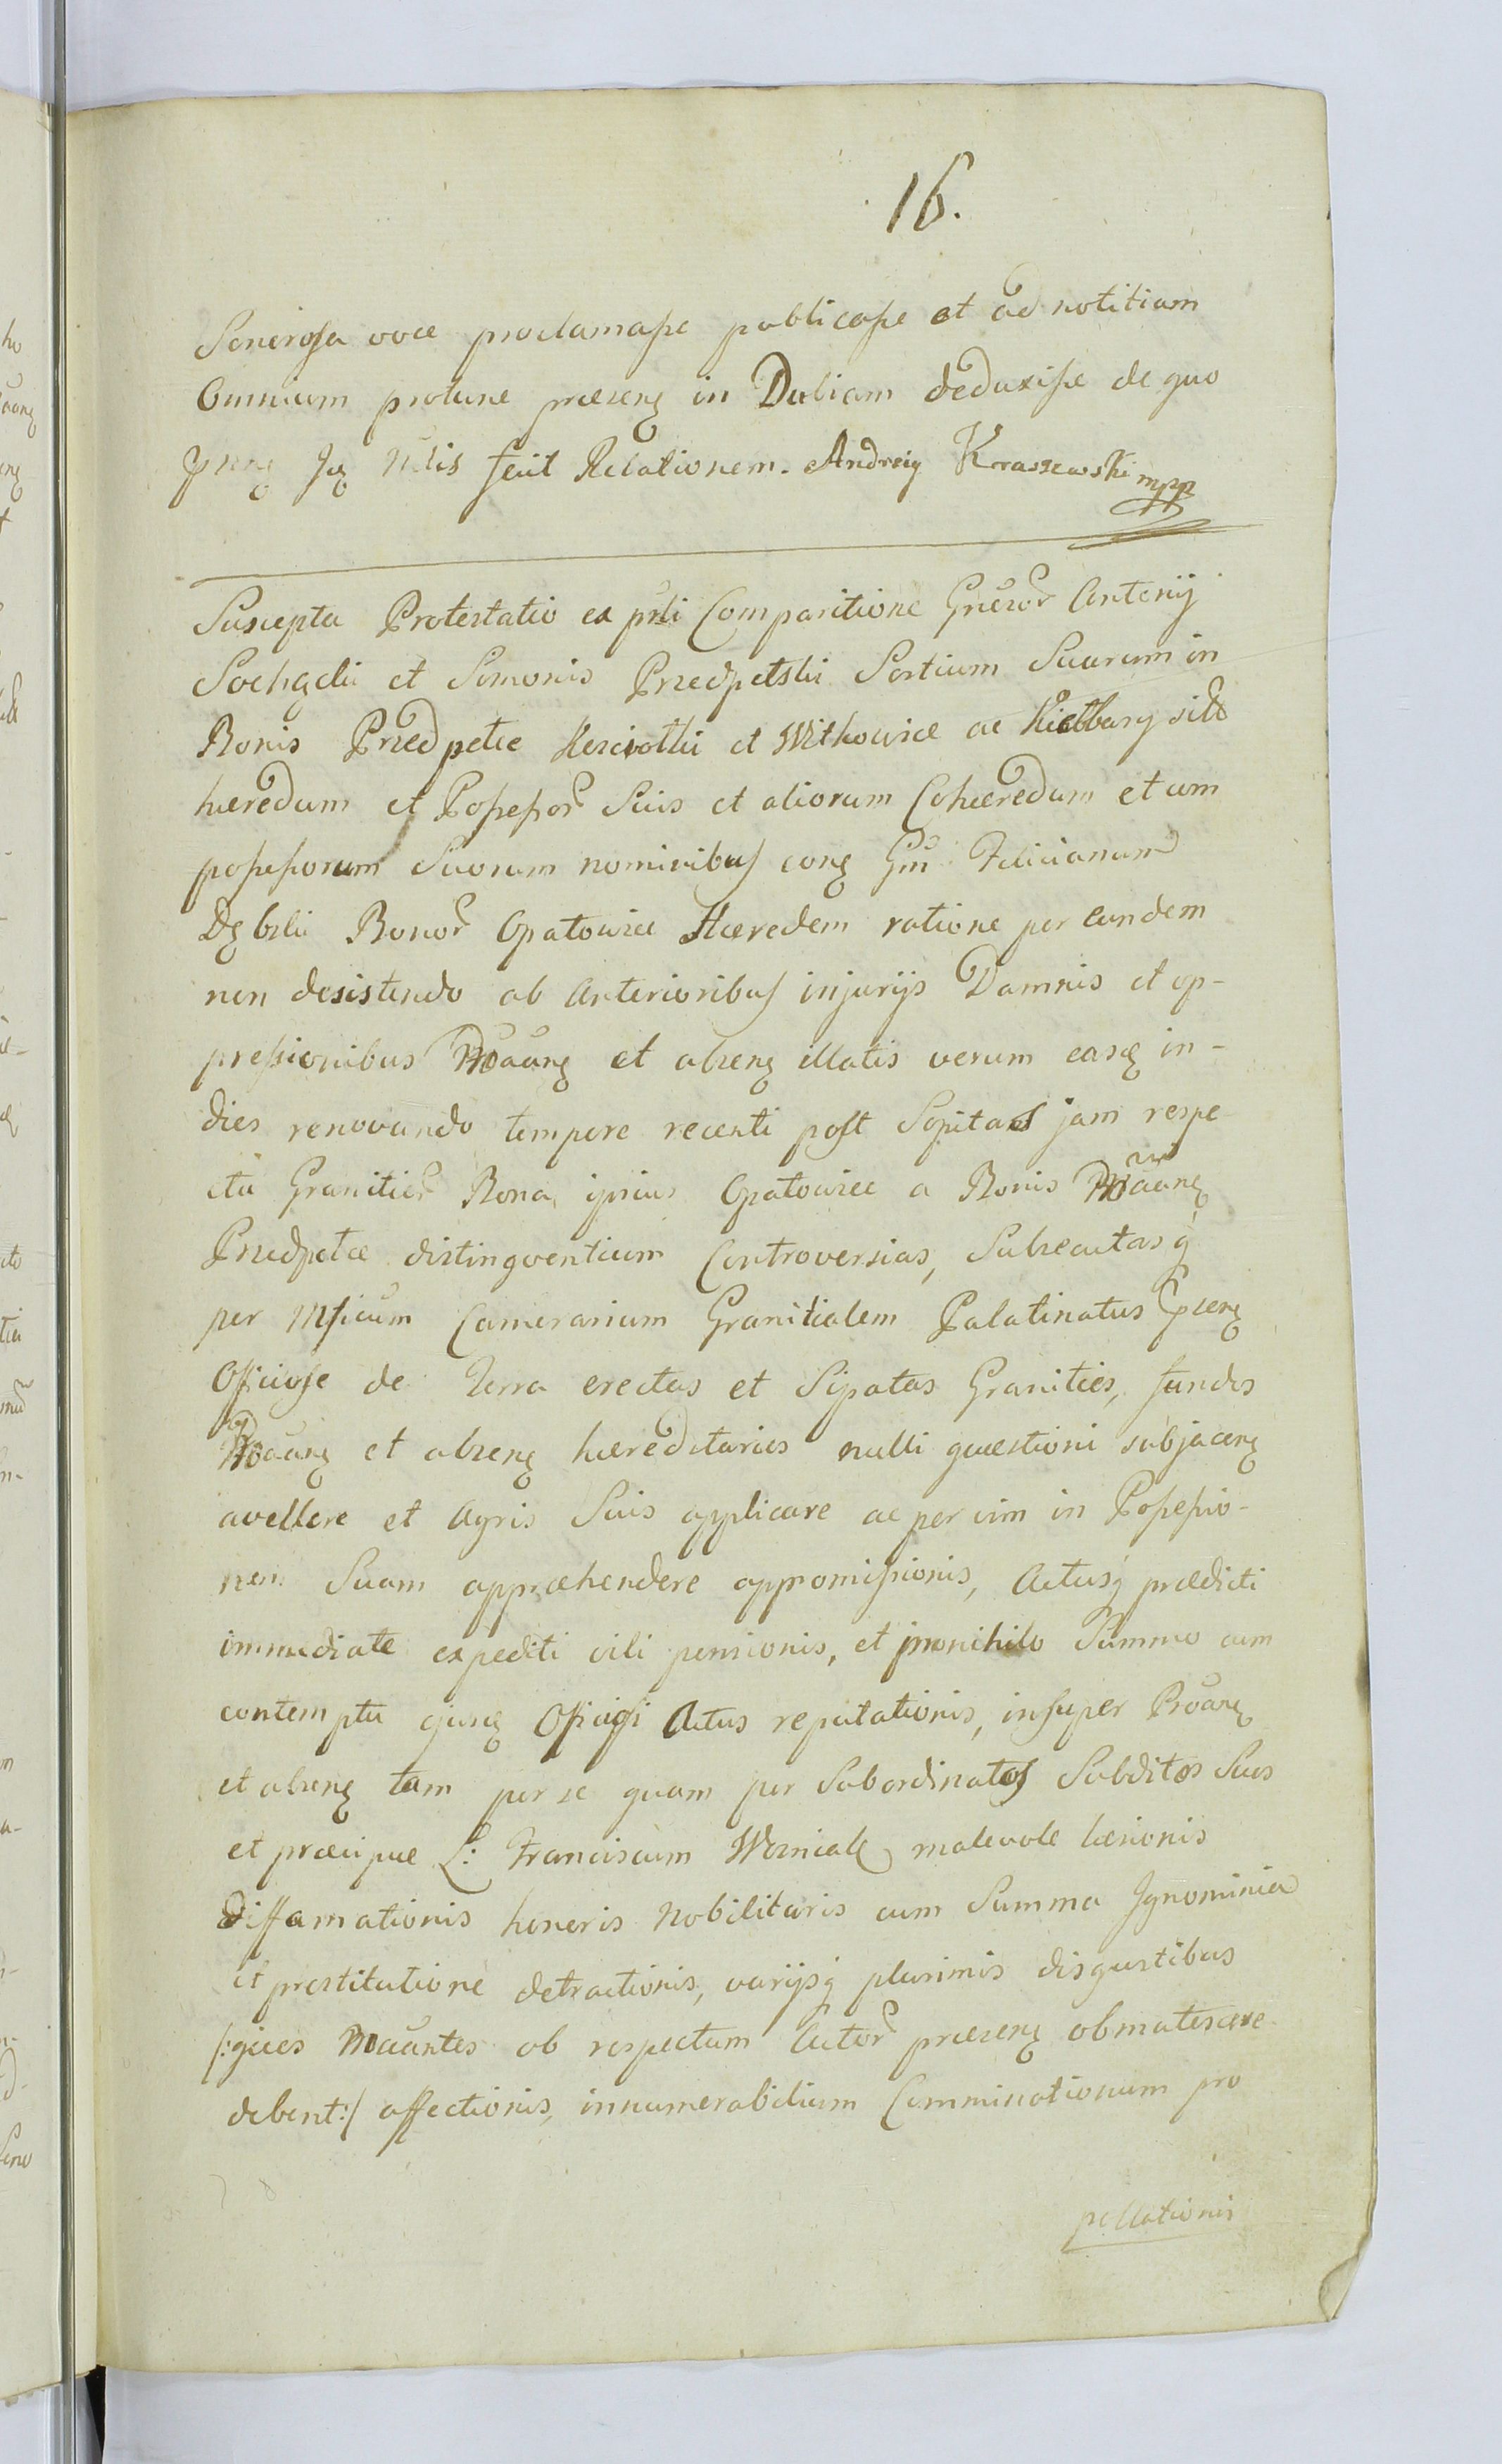 16.
Sonorosa voce proclamasse publicasse et ad notitiam
Omnium protunc praesenꝫ in Dubiam deduxisse de quo
idem Ꝫ Nblis fecit Relationem. Andreiy Kraszewski mpp
Suscepta Protestatio ex prli Comparitione Gnesor Antonij
et Simonis Przedpelski Sortium Suarum in
Bonis Przedpełce et Witkowice ac Kiełbasy sitt
haeredum et Possessor Suis et aliorum Cohaeredum et com
possessorum Suorum nominibus conꝫ Gm Felicianum
Dębski Bonor Opatowiec Haeredem ratione per Eundem
non desistendo ab Anterioribus injurijs Damnis et op-
pressionibus Proaunꝫ et absenꝫ illatis verum easqꝫ in-
dies renovando tempore recenti post Sopitas jam respe
ctu Granitier Bona ipsius Opatowiec a Bonis Proaunꝫ
Przedpełce distingventium Controversias, Subsecutasq
per Mficum Camerarium Granitialem Palatinatus
Officiose de Terra erectas et Sipatas Granities, fundos
Proaunꝫ et absenꝫ haereditarios nulli quaestioni subjacenꝫ
avellere et Agris Suis applicare ac per vim in Possessio-
nem Suam appraehendere appromissionis, Actusq praedicti
immediate expediti vili pensionis, et pronihilo Summo cum
contemptu ejusqꝫ Officiosi Actus reputationis, insuper Proanꝫ
et absenꝫ tam per se quam per Subordinatos Subditos Suos
et praecipue L: Franciscum Wozniak malevole laesionis
diffamationis honoris Nobilitaris cum Summa Ignominia
et prostitutione detractionis, varijsq plurimis disgustibus
/:qies Proauntes ob respectum Actor praesenꝫ obmutescere
debent:/ affectionis, innumerabilium Comminationum pro
pellationis